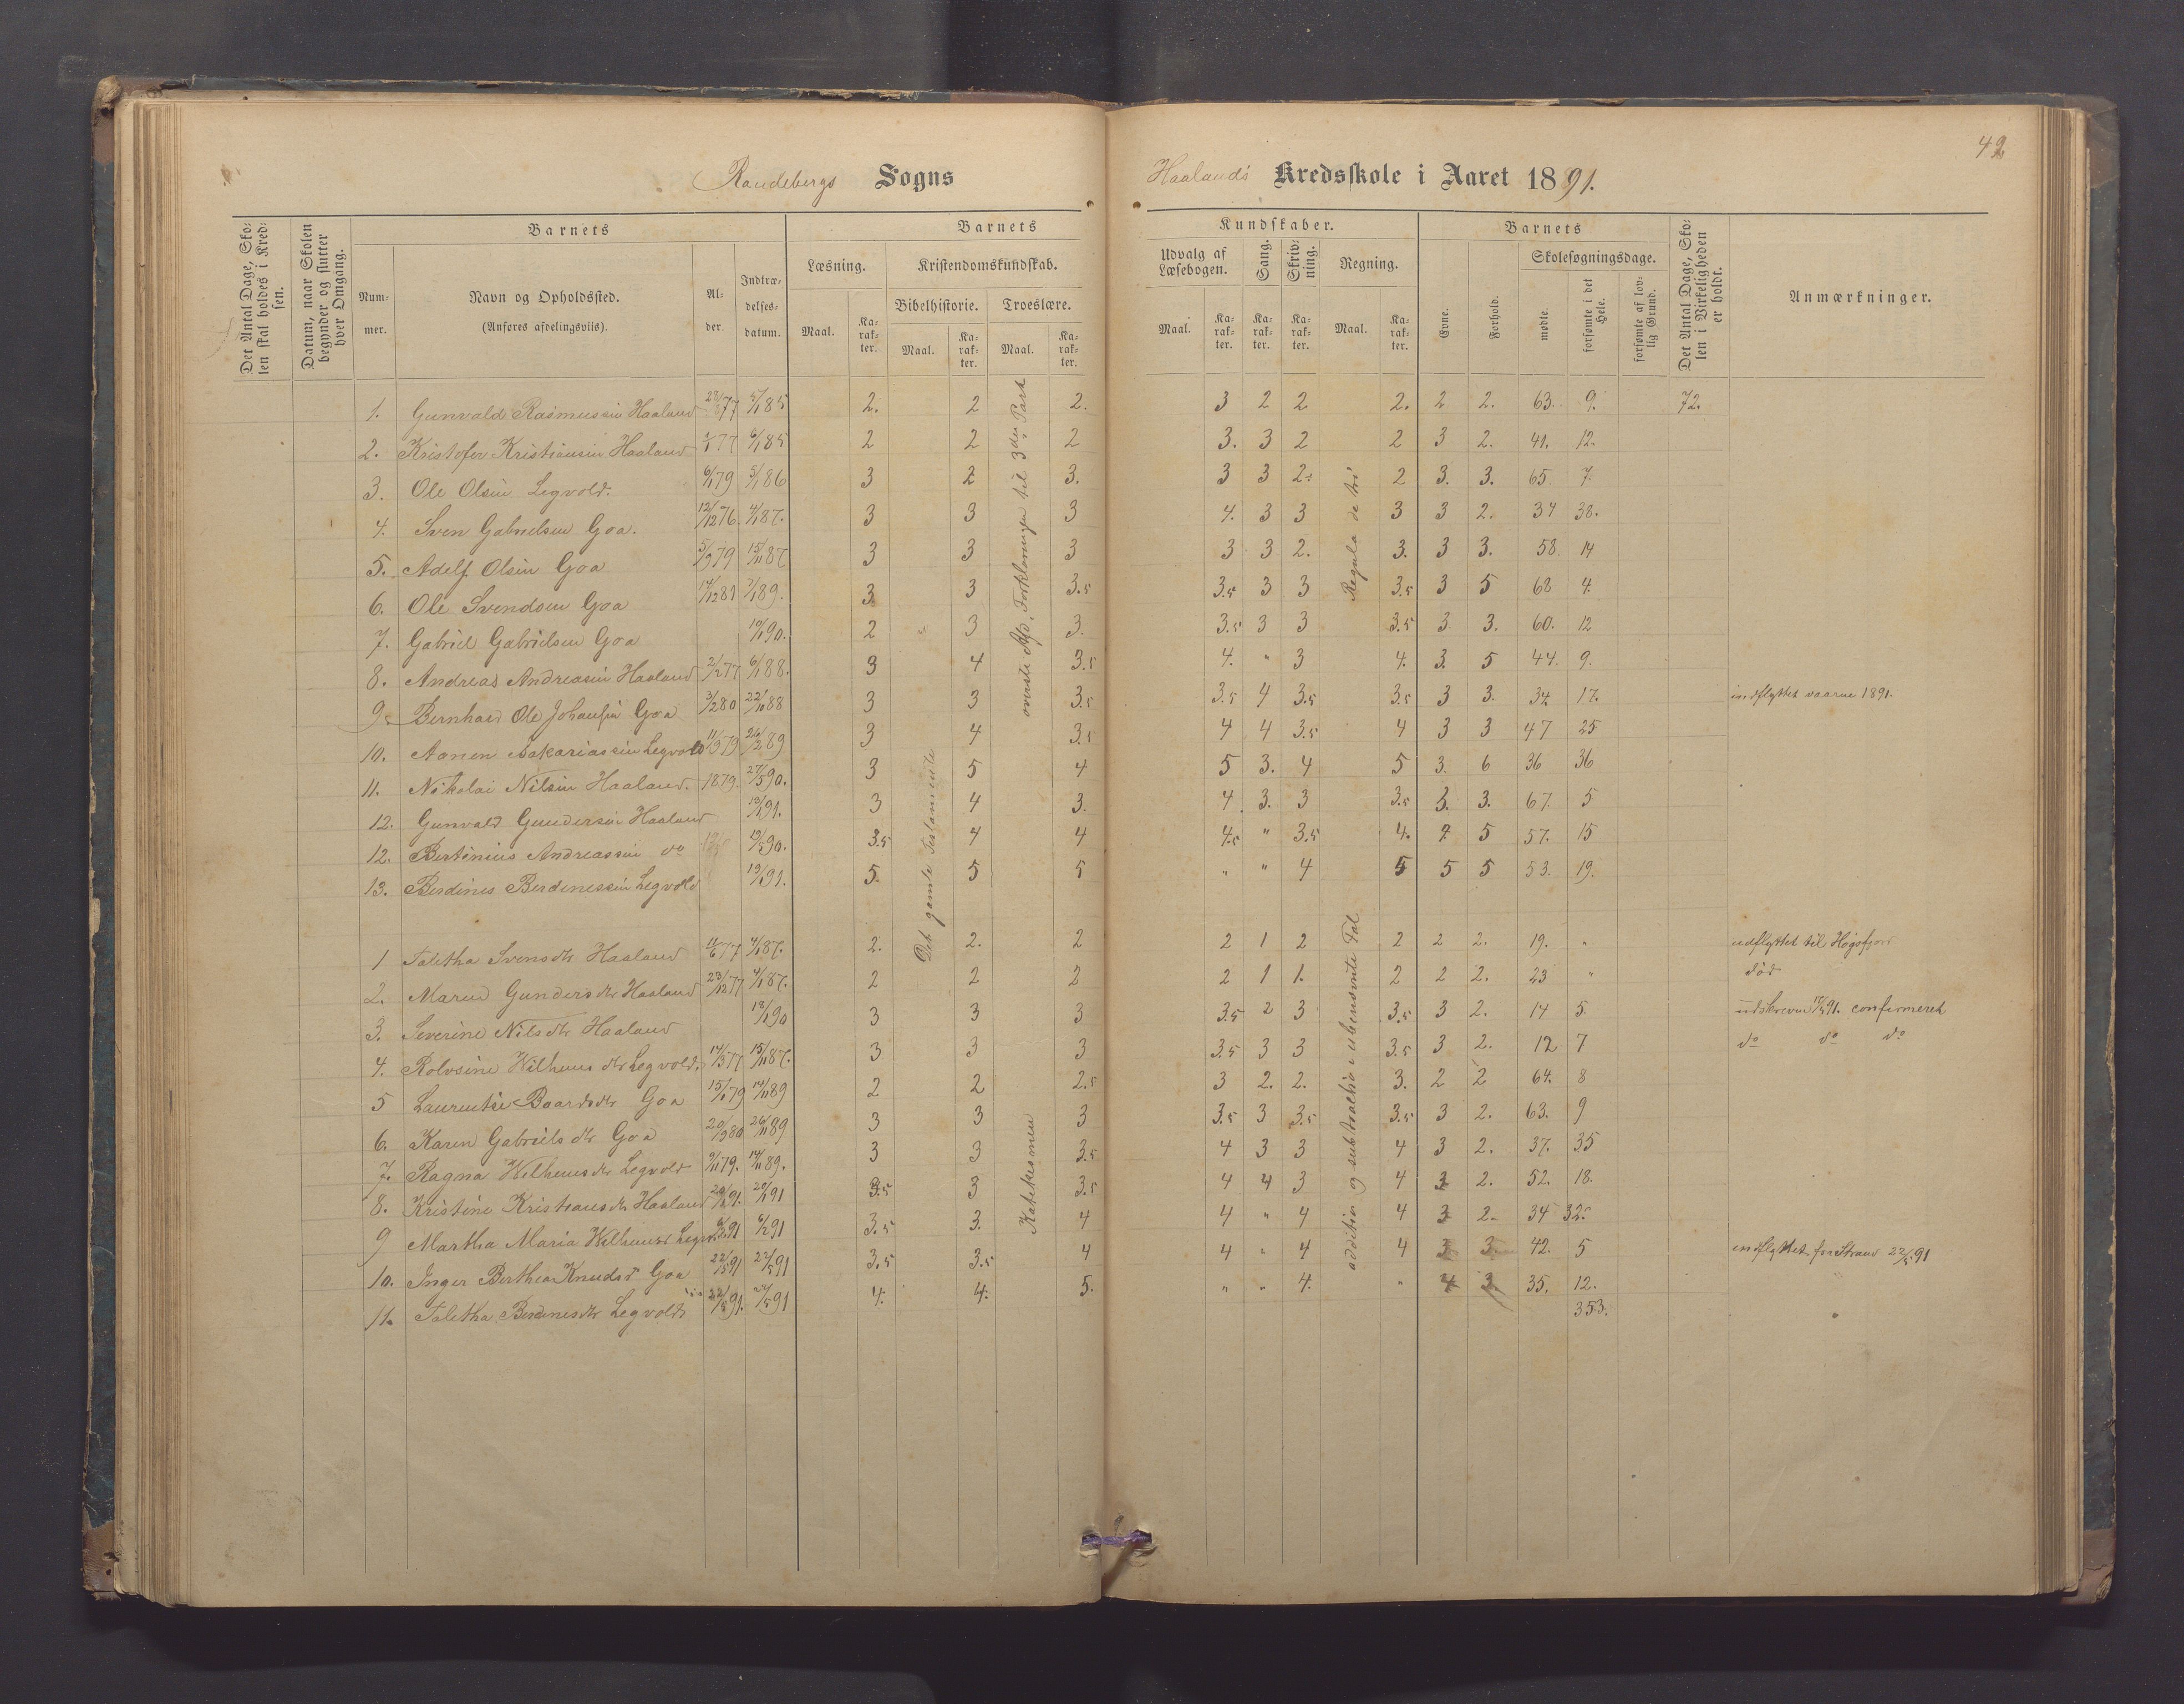 42
Randebergs Sogns
Haalands Kredsskole i Aaret 1891.
Det Antal Dage, Skolen skal holdes i Kredsen.
Datum, naar Skolen begynder og slutter hver Omgang.
Barnets
Nummer.
Navn og Opholdssted.
(Anføres afdelingsviis).
Alder.
Indtrædelsesdatum.
Barnets
Læsning.
Maal. Karakter.
Kristendomskundskab.
Bibelhistorie. Troeslære.
Maal. Karakter. Maal. Karakter.
Kundskaber.
Udvalg af Læsebogen. Sang. Skrivning. Regning.
Maal. Karakter. Karakter. Karakter. Maal. Karakter.
Barnets
Evne. Forhold.
Skolesøgningsdage.
mødte. forsømte i det Hele. forsømte af lovlig Grund.
Det Antal Dage, Skolen i Virkeligheden er holdt.
Anmærkninger.
1. Gunvald Rasmussen Haaland 2. 2 2. 3 2 2 2. 2 2. 63. 9. 72.
2. Kristofer Kristiansen Haaland 6/1 85 2 2 2 3. 3 2 2 3 2. 41. 12.
3. Ole Olsen Legvold. 6/1 79 5/1 86 3 2 3. 3 3 2. 2 3. 3. 65 7.
4. Sven Gabrielsen Goa. 12/12 76. 4/1 87. 3 3 3 4. 3 3 3 3 2. 34 38.
5. Adolf Olsen Goa 5/3 79 15/11 87 3 3 3 3 3 2. 3. 3 3. 58. 14
6. Ole Svendsen Goa 14/12 81 7/1 89. 3. 3 3.5 3.5 3 3 3.5 3 5 68 4.
7. Gabriel Gabrielsen Goa 10/1 90. 2 3 3. 3.5 3 3 3.5 3. 3. 60. 12
8. Andreas Andreasen Haaland 2/2 77 6/1 88. 3 4 3.5 4. " 3 4. 3. 5 44. 9.
9. Bernhard Ole Johansen Goa 3/2 80 22/10 88 3 3 3.5 3.5 4 3.5 3.5 3 3. 34 17. indflyttet vaaren 1891.
10. Aanen Sakariassen Legvold 11/3 79 26/2 89 3 4 3.5 4 4 3.5 4 3 3 47 25
11. Nikolai Nilsen Haaland. 1879. 27/5 90. 3 5 4 5 3. 4 5 3. 6 36 36
12. Gunvald Gundersen Haaland 13/1 91. 3 4 3. 4. 3. 3 3.5 3. 3. 67. 5
12. Bertinius Andreassen do 3.5 4 4 4.5 " 3.5 4. 5 57. 15
13. Berdines Berdinessen Legvold 19/1 91. 5. 5 5 " " 4 5 5 5 53. 19.
1 Talitha Svensdtr Haaland 4/1 87. 2. 2. 2 2 1 2 2 2 2. 19. " udflyttet til Høgsfjord
2. Maren Gundersdtr Haaland 23/12 77 4/1 87. 2 2 2 2 1 1. 2 2 2. 23 " død
3. Severine Nilsdtr Haaland 13/1 90 3 3 3 3.5 2 3 3.5 3 2. 14 5. udskreven 17/4 91. confirmeret
4. Rolvsine Wilhemsdtr Legvold. 14/3 77 15/11 87. 3 3 3 3.5 3 3 3.5 3 2. 12 7 do do do
5 Laurentse Baardsdtr Goa 15/1 79 14/11 89 2 2 2.5 3 2. 2. 3. 2 2 64. 8
6. Karen Gabrielsdtr Goa 20/9 80 26/11 89 3 3 3 3.5 3 3.5 3.5 3 2. 63. 9
7. Ragna Wilhemsdtr Legvold 9/11 79. 14/11 89. 3 3 3.5 4 3 3 4 3 2. 37. 35
8. Kristine Kristiansdtr Haaland 20/1 91. 20/1 91 3.5 3 3.5 4 4 3 4 3 2. 52. 18.
9 Martha Maria Wilhemsd Legv. 6/2 91 3.5 3. 4 4 " 4 4 3 2. 34 32.
10. Inger Berthea Knudsd Goa 22/5 91 22/5 91 3.5 3.5 4 4 " 4 4 3 3. 42. 5 indflyttet fra Strand 22/5 91
11. Talitha Berdinesdtr Legvold 22/5 91. 4. 4. 5. " " 4. " 4 3 35. 12.
353.
Det gamle Testamente
øverste Afd. Forklaringen til 3die Part
Katekismen
Regula de tri
addition og subtraction i ubenævnte Tal